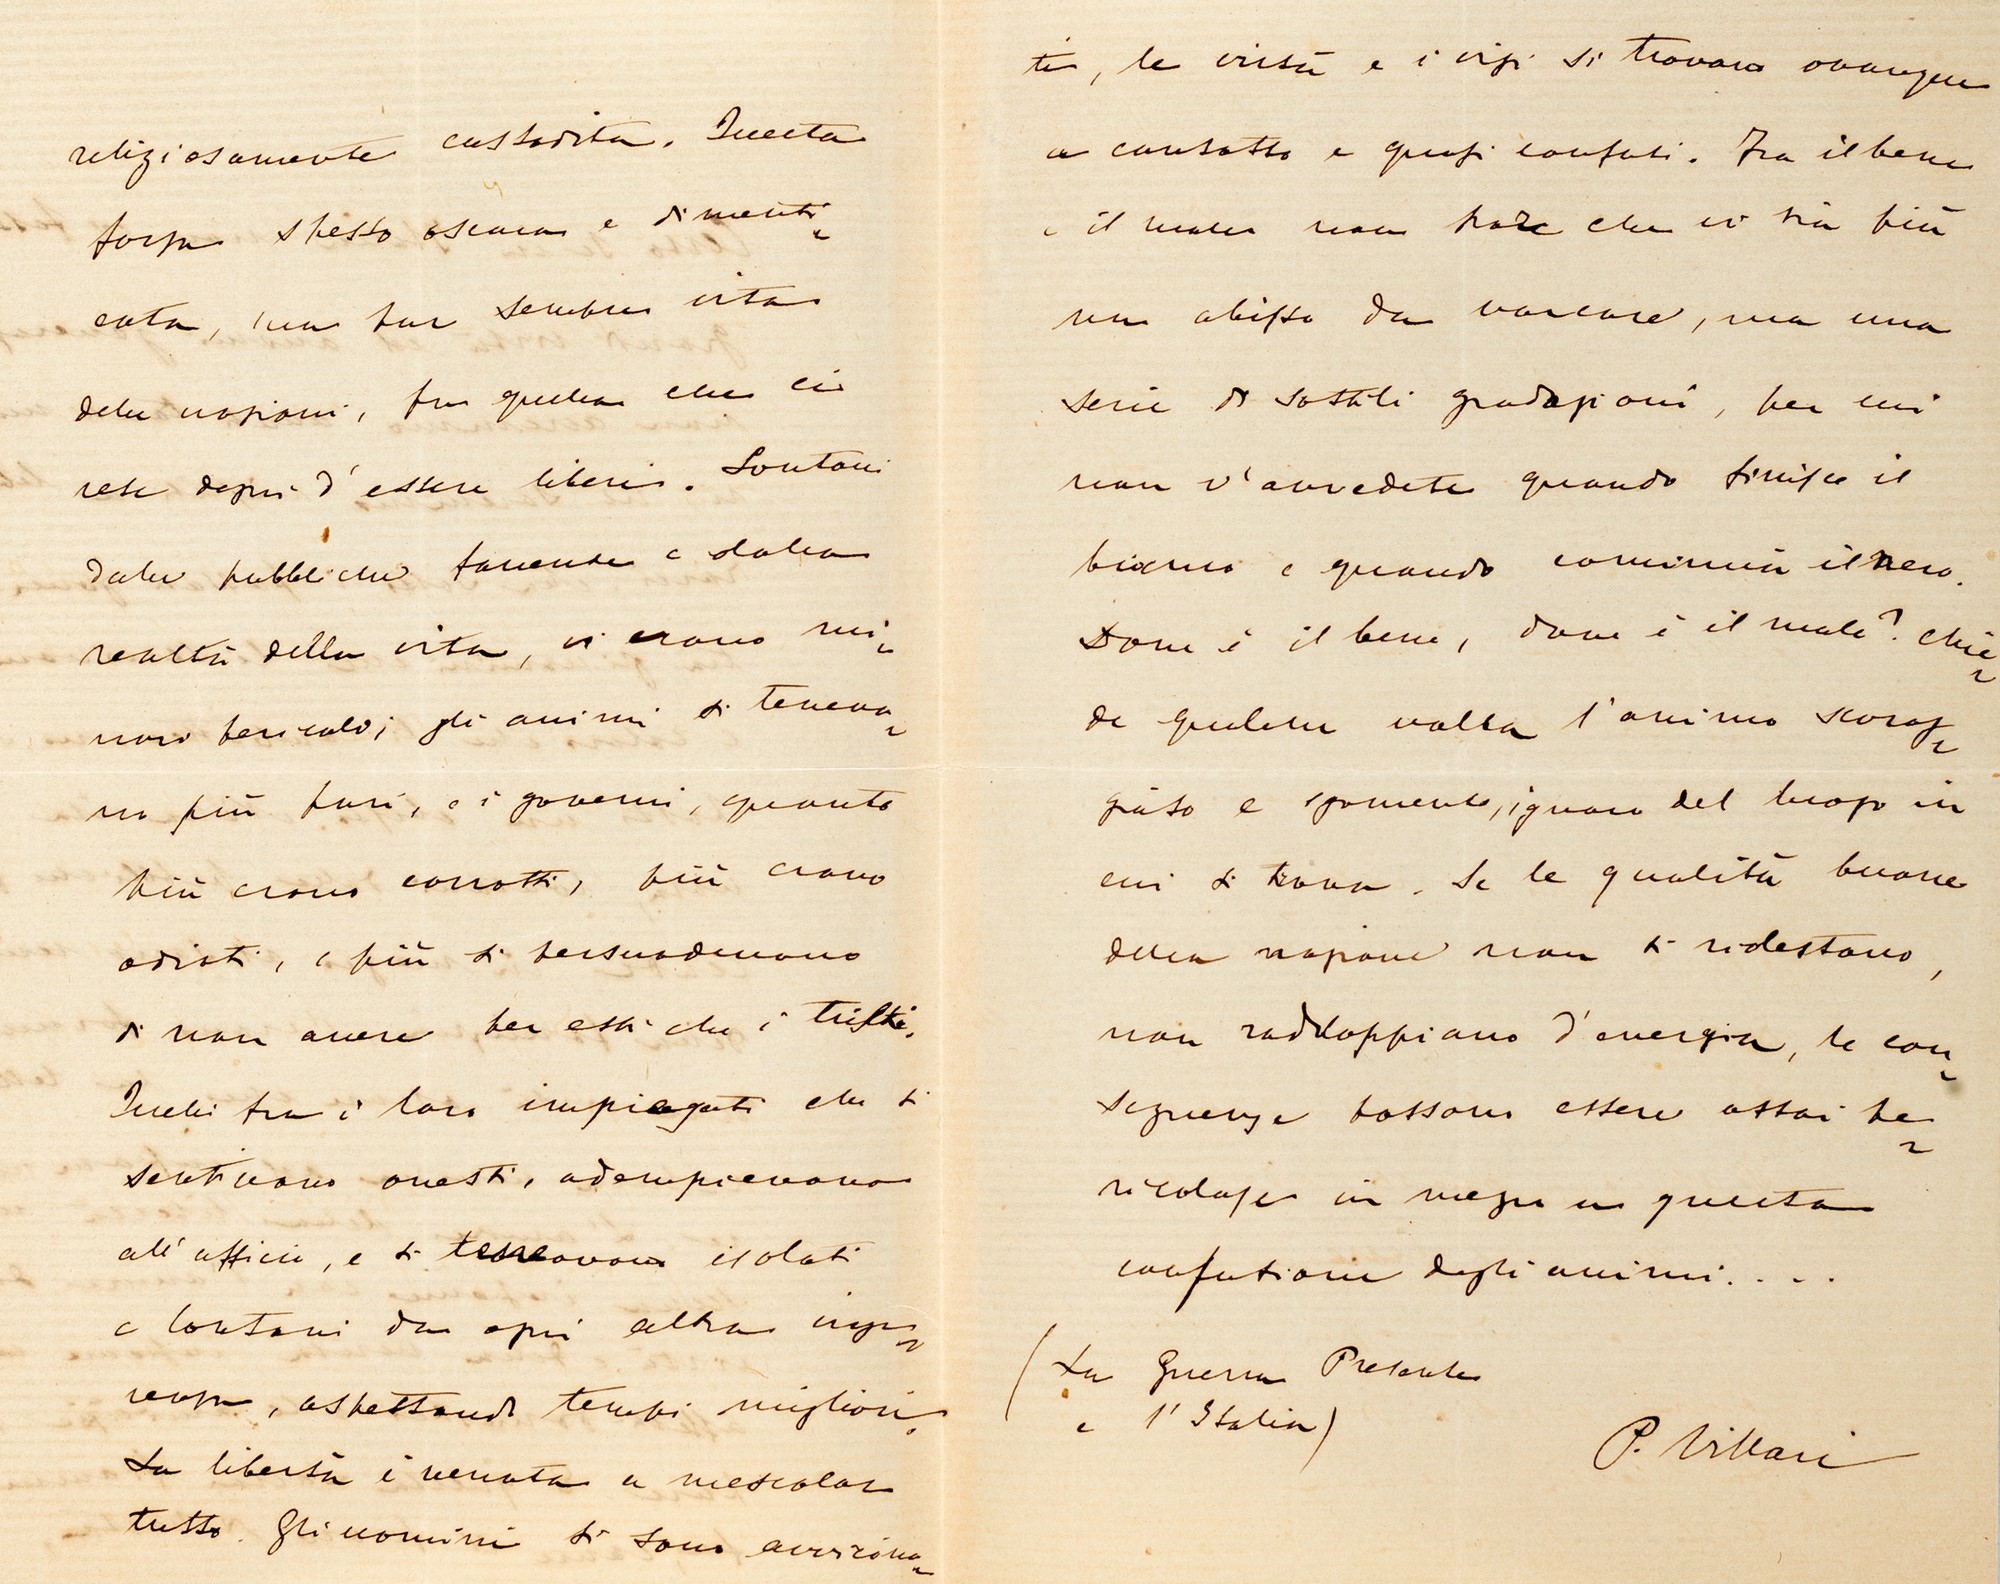 religiosamente custodita. Questa
forza spesso oscura e dimenti-
cata, ma pur sempre vita
delle nazioni, fu quella che ci
rese degni d'essere liberi. Lontani
dalle pubbliche faccende e dalla
realtà della vita, vi erano mi-
nori pericoli; gli animi si teneva-
no più puri, e i governi, quanto
più erano corrotti, più erano
odiati, e più si persuadevano
di non avere per essi che i tristi.
Quelli fra i loro impiegati che si
sentivano onesti, adempievano
all'ufficio, e si trovavano isolati
e lontani da ogni altra inge-
renza, aspettando tempi migliori.
La libertà è venuta a mescolar
tutto. Gli uomini si sono avvicina-
ti, le virtù e i vizi si trovano ovunque
a contatto e quasi confusi. Fra il bene
e il male non pare che vi sia più
un abisso da varcare, ma una
serie di sottili gradazioni, per cui
non v'avvedete quando finisce il
bianco e quando comincia il nero.
Dove è il bene, dove è il male? chie-
de qualche volta l'animo scorag-
giato e sgomento, ignaro del luogo in
cui si trova. Se le qualità buone
della nazione non si ridestano,
non raddoppiano d'energia, le con-
seguenze possono essere assai pe-
ricolose in mezzo a questa
confusione degli animi....
(La Guerra Presente
e l'Italia)
P. Villari